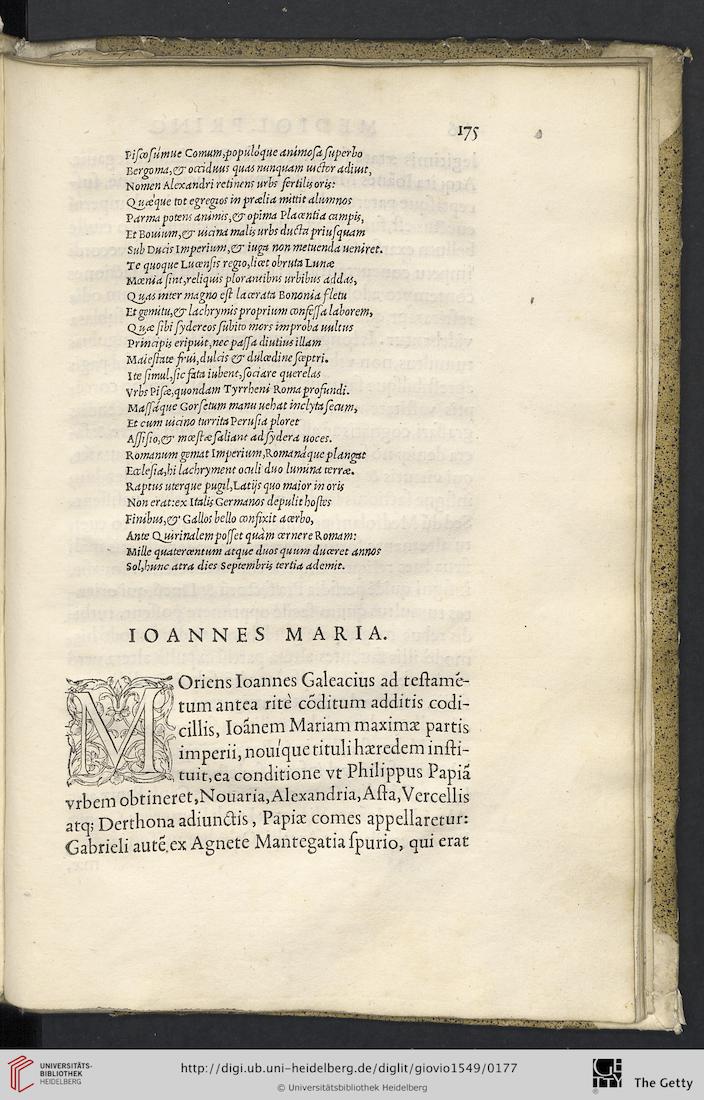 175
Piscosúmue Comum, populóque animosa superbo
Bergoma, & occiduus quas nunquam uictor adiuit,
Nomen Alexandri retinens urbs fertilis oris:
Quæque tot egregios in prælia mittit alumnos
Parma potens animis, & opima Placentia campis,
Et Bouium, & uicina malis urbs ducta priusquam
Sub Ducis Imperium, & iuga non metuenda ueniret.
Te quoque Lucensis regio, licet obruta Lunæ
Mœnia sint, reliquis plorantibus urbibus addas,
Quas inter magno est lacerata Bononia fletu
Et gemitu, & lachrymis proprium confessa laborem,
Quæ sibi sydereos subito mors improba uultus
Principis eripuit, nec passa diutius illam
Maiestate frui, dulcis & dulcedine sceptri.
Ite simul, sic fata iubent, sociare querelas
Vrbs Pisæ, quondam Tyrrheni Roma profundi.
Massáque Gorsetum manu uehat inclyta secum,
Et cum uicino turrita Perusia ploret
Assisio, & mœstæ saliant ad sydera uoces.
Romanum gemat Imperium, Romanáque plangat
Ecclesia, hi lachryment oculi duo lumina terræ.
Raptus uterque pugil, Latijs quo maior in oris
Non erat: ex Italis Germanos depulit hostes
Finibus, & Gallos bello confixit acerbo,
Ante Quirinalem posset quàm cernere Romam:
Mille quatercentum atque duos quum duceret annos
Sol, hunc atra dies Septembris tertia ademit.
IOANNES MARIA.
MOriens Ioannes Galeacius ad testamē-
tum antea ritè cõditum additis codi-
cillis, Ioãnem Mariam maximæ partis
imperii, nouíque tituli hæredem insti-
tuit, ea conditione vt Philippus Papiã
vrbem obtineret, Nouaria, Alexandria, Asta, Vercellis
atq; Derthona adiunctis, Papiæ comes appellaretur:
Gabrieli autē, ex Agnete Mantegatia spurio, qui erat
UNIVERSITÄTS-
BIBLIOTHEK
HEIDELBERG
http://digi.ub.uni-heidelberg.de/diglit/giovio1549/0177
© Universitätsbibliothek Heidelberg
The Getty